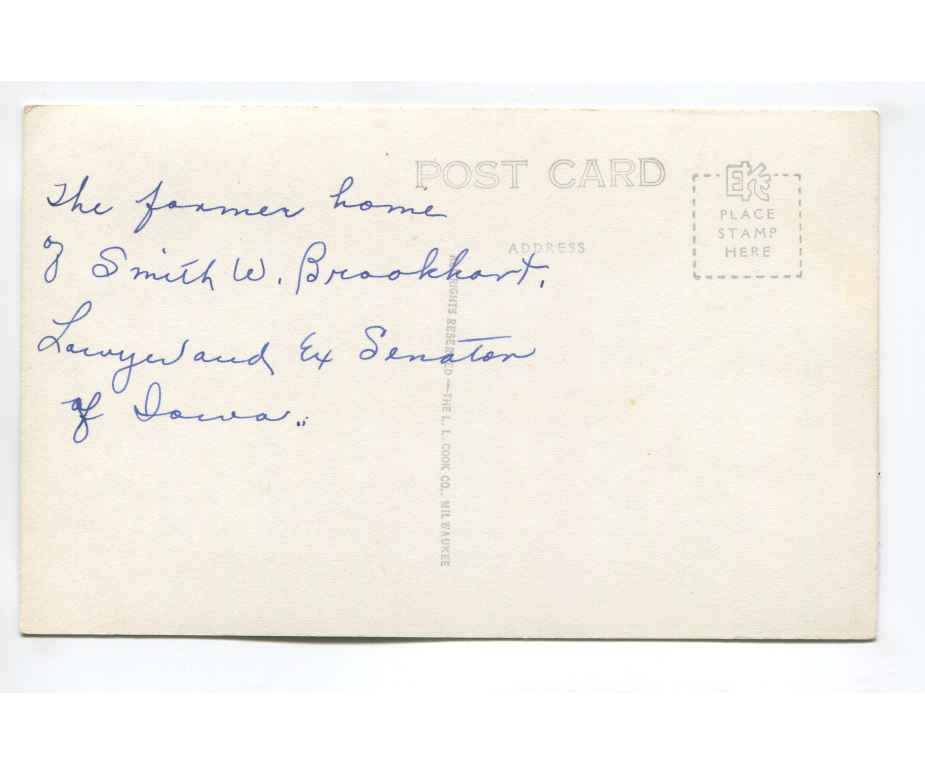 POST CARD
The former home
of Smith W. Brookhart,
Lawyer and Ex Senator
of Iowa..
ADDRESS
EKC
PLACE
STAMP
HERE
ALL RIGHTS RESERVED—THE L. L. COOK CO., MILWAUKEE